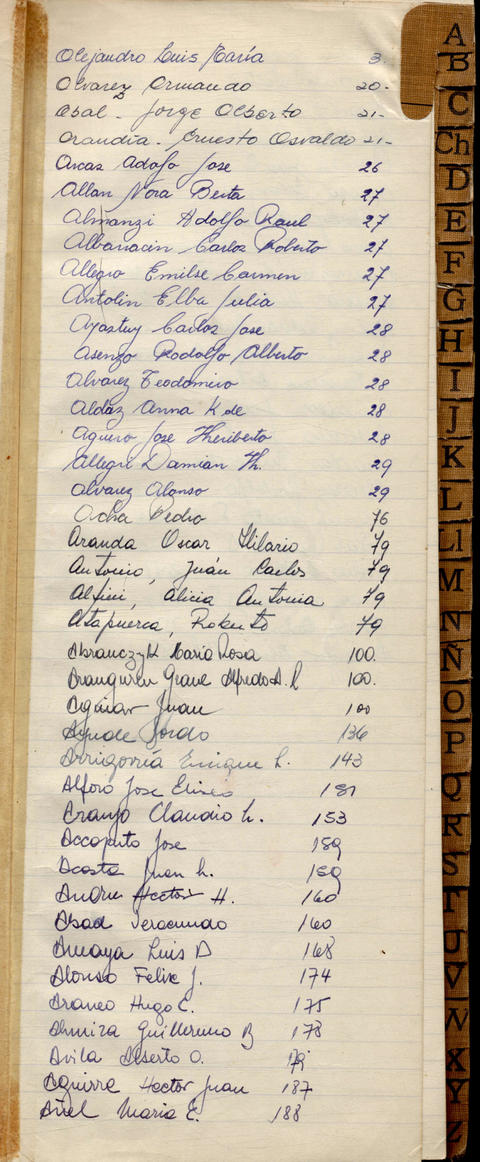 Alejandro Luis María 3
Alvarez Armando 20-
Abal - Jorge Alberto 21-
Arandia - Ernesto Osvaldo 21-
Arcas Adolfo Jose 26
Allan Nora Berta 27
Almanzi Adolfo Raul 27
Albanacin Carlos Roberto 27
Allegro Emilse Carmen 27
Antolin Elba Julia 27
Ayastuy Carlos Jose 28
Asenzo Rodolfo Alberto 28
Alvarez Teodomiro 28
Aldaz Anna K de 28
Aguero Jose Heriberto 28
Allegri Damian Th. 29
Alvarez Alonso 29
Acha Pedro 76
Aranda Oscar Hilario 79
Antonio, Juán Carlos 79
Alfini, Alicia Antonia 79
Atapuerca, Roberto 79
Abranczyk Maria Rosa 100.
Aranguren Alfredo A. 100.
Aguiar Juan 100
136
Arrigorría Enrique L. 143
Alfaro Jose Eliseo 151
Aranjo Claudio L. 153
Accoputo Jose 159
Acosta Juan L. 159
Andru Hector H. 160
Abad Veracundo 160
Amaya Luis D 168
Alonso Felix J. 174
Araneo Hugo C. 175
Almiza Guillermo B 178
Avila Alberto O.
Aguirre Hector Juan 187
Añel Maria E. 188
A
B
C
Ch
D
E
F
G
H
I
J
K
L
Ll
M
N
Ñ
O
P
Q
R
S
T
U
V
W
X
Y
Z